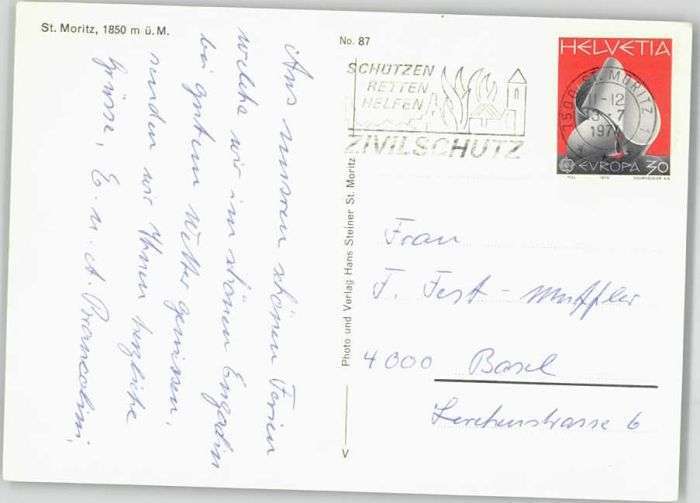 St. Moritz, 1850 m ü. M.
Aus unsren schönen Ferien
welche wir im schönen Engadin
bei gutem Wetter geniessen,
senden wir Ihnen herzliche
Grüsse, E. u. A.
No. 87
SCHÜTZEN
RETTEN
HELFEN
ZIVILSCHUTZ
HELVETIA
7500 ST. MORITZ 1
11-12
197
EVROPA 30
1974
Photo und Verlag Hans Steiner St. Moritz
V
Frau
F. Fest-Muffler
4000 Basel
Lerchenstrasse 6